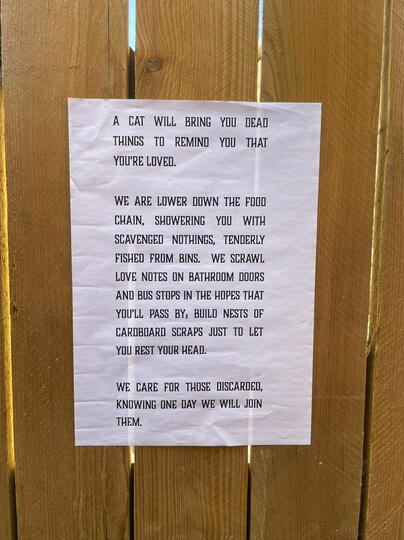 A CAT WILL BRING YOU DEAD
THINGS TO REMIND YOU THAT
YOU'RE LOVED.
WE ARE LOWER DOWN THE FOOD
CHAIN, SHOWERING YOU WITH
SCAVENGED NOTHINGS, TENDERLY
FISHED FROM BINS. WE SCRAWL
LOVE NOTES ON BATHROOM DOORS
AND BUS STOPS IN THE HOPES THAT
YOU'LL PASS BY, BUILD NESTS OF
CARDBOARD SCRAPS JUST TO LET
YOU REST YOUR HEAD.
WE CARE FOR THOSE DISCARDED,
KNOWING ONE DAY WE WILL JOIN
THEM.